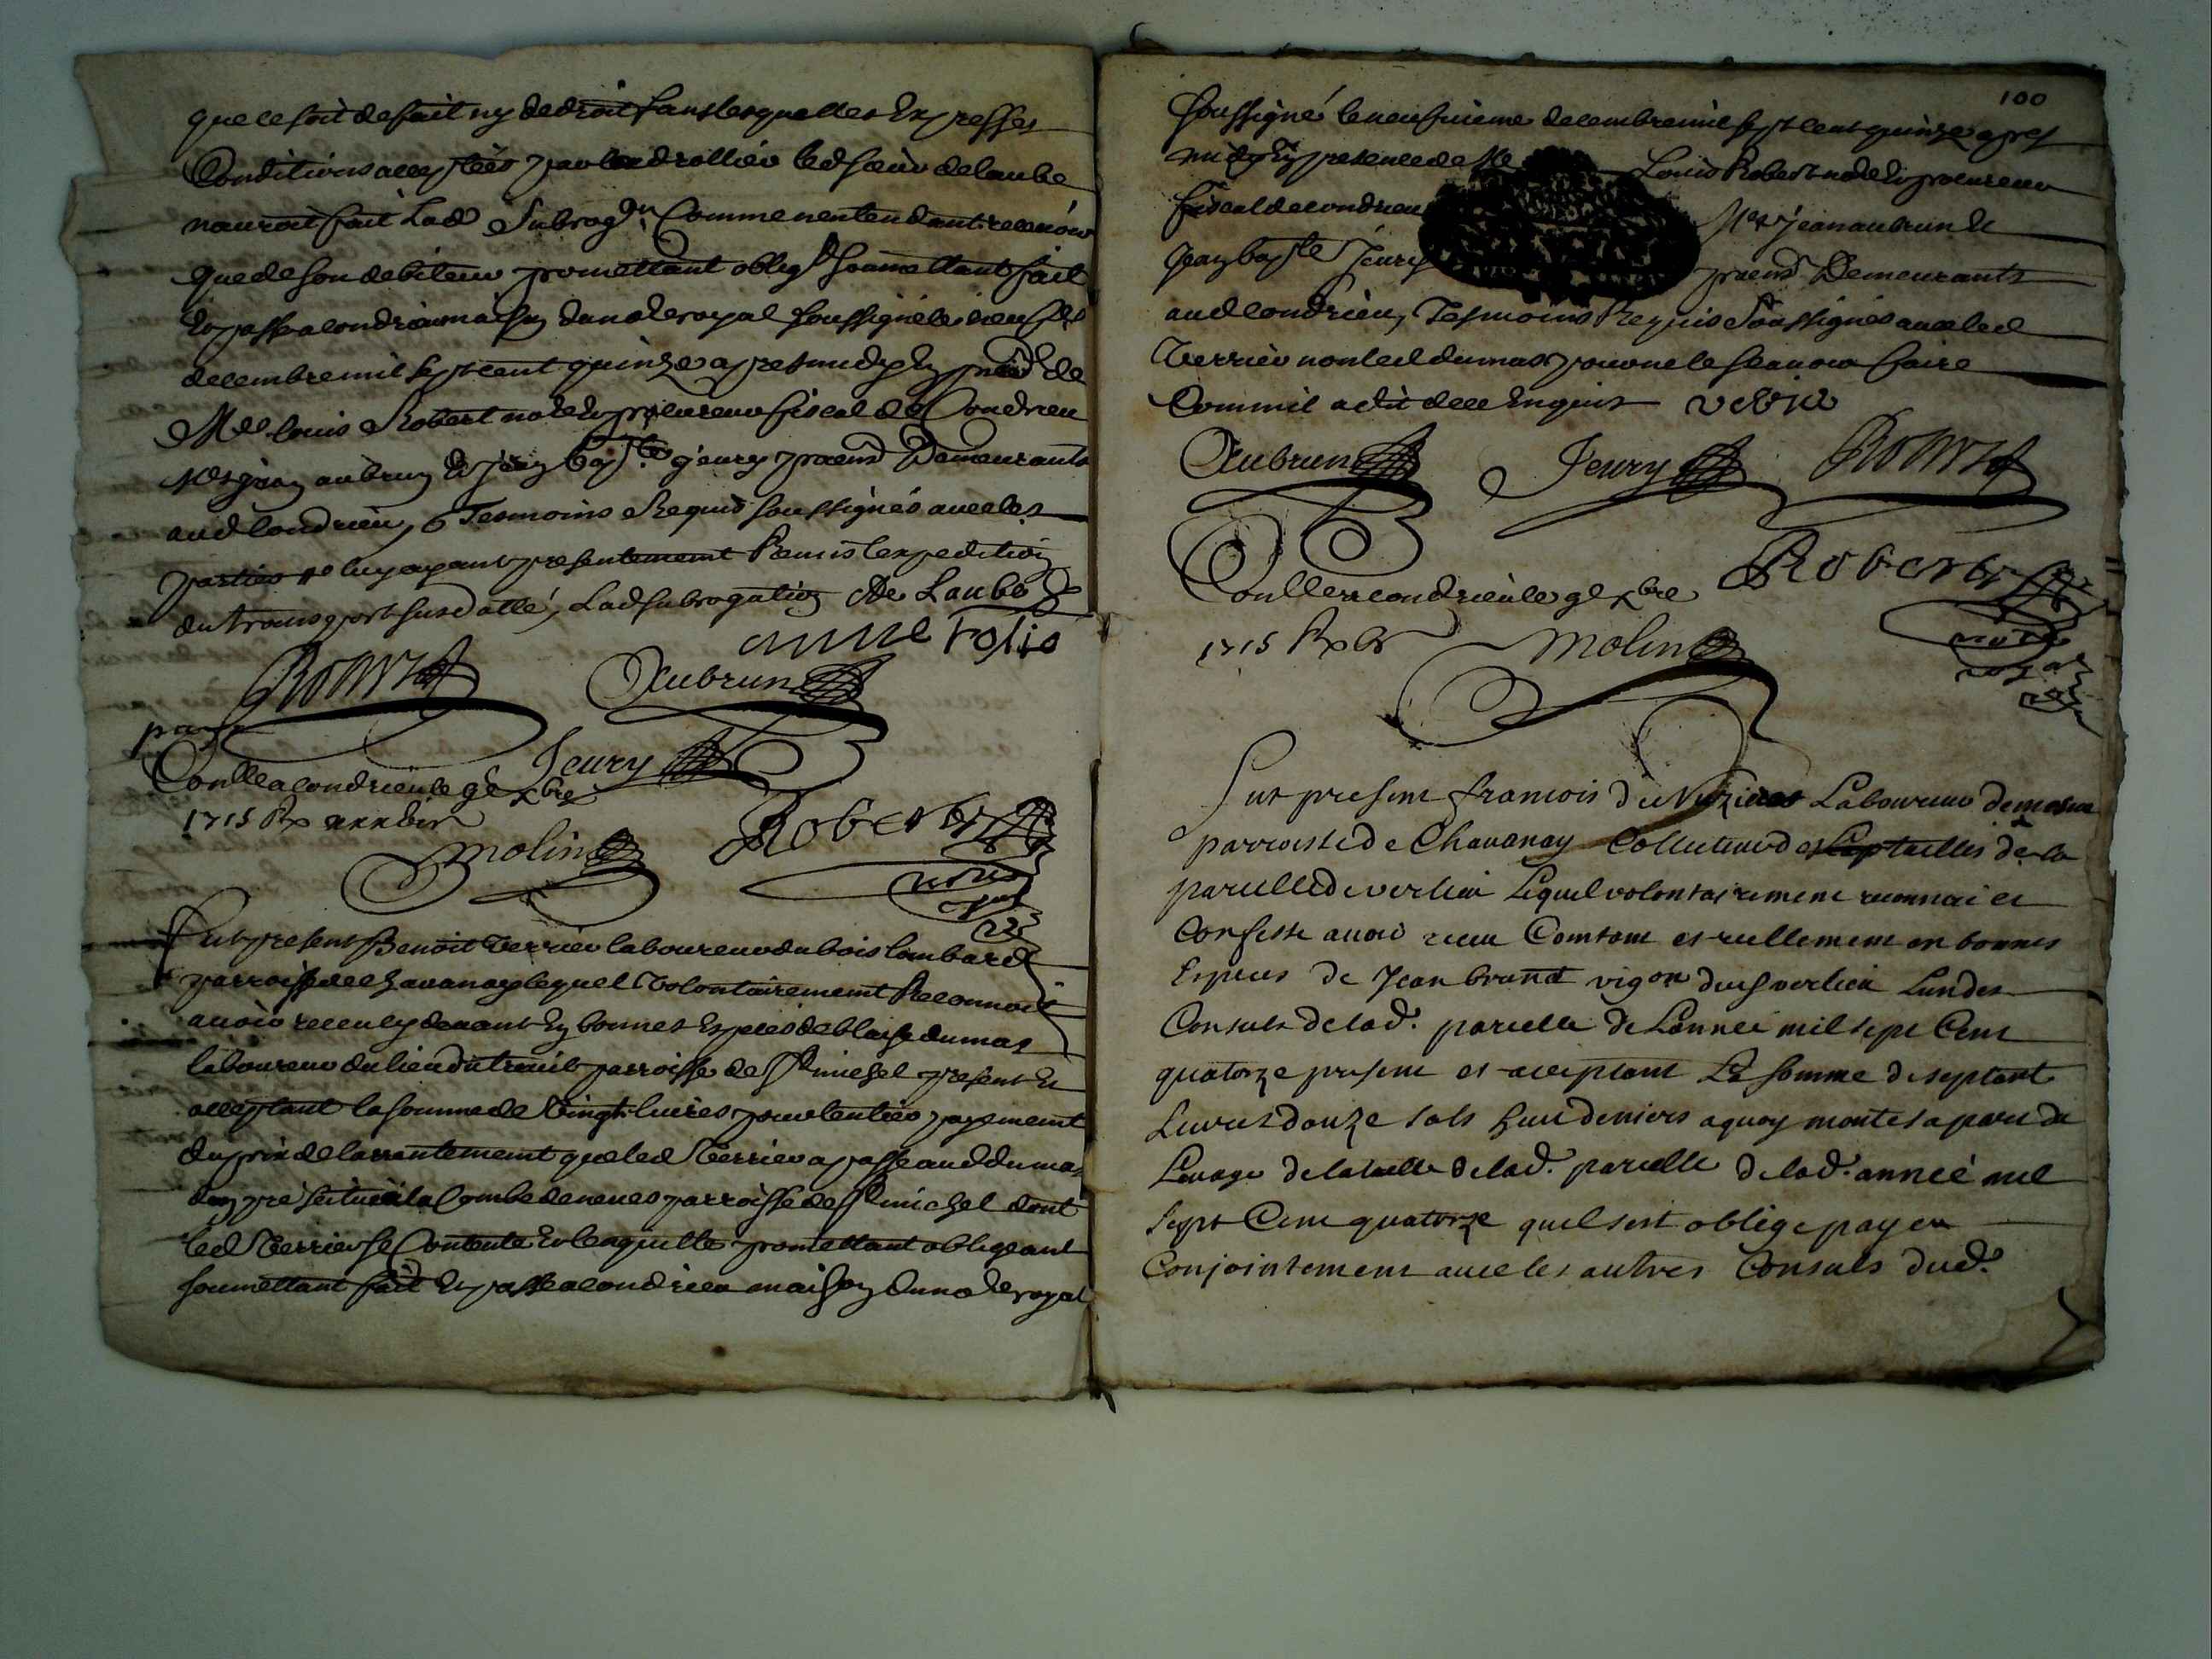 que ce soit de fait ny de droit sans lesquelles Expresses
Conditions acceptées par led rollier led sieur delaube
nauroit fait Lad Subrogon Comme nentendant recevoir
que de son debiteur promettant oblig soumettant fait
Et passé a condrieu maison du no.re royal soussigné le
decembre mil sept cent quinze apres midy En de
Me louis Robert no.re Et procureur fiscal de Condrieu
Mes jean aubrun Et jean bap.te jeury praens Demeurants
aud Condrieu, Tesmoins Requis soussignés avec les
parties luy ayant presentement Remis lexpedition
du transport susdatté, Lad subrogation De Laube
anne rolio
Aubrun
Con.lle a condrieu le 9e xbre
Jeury
1715 Rx
molin
Robert
no.re
royal
fut present Benoit Verrier laboureur du bois lombard
parroisse de Chavanay lequel Volontairement Reconnoit
avoir receu cy devant En bonnes Especes de blaise dumas
laboureur du lieu du treuil parroisse de St michel present Et
acceptant la somme de Vingt livres pour lentier payement
du prix de larrentement que led Verrier a passé aud dumas
dun pré scitué a la Combe de parroisse de St michel dont
led Verrier se Contente Et lenquitte promettant obligeant
soumettant fait Et passé a condrieu maison du no.re royal
100
soussigné le neufvieme decembre mil sept cent quinze apres
midy En presence de Me Louis Robert no.re Et procureur
fiscal de condrieu Mes jean aubrun Et
jean bap.te jeury praens Demeurants
aud Condrieu, Tesmoins Requis Soussignés avec led
Verrier non led dumas pour ne le scavoir faire
Comm il a dit de ce Enquis
Aubrun
Jeury
Con.lle a condrieu le 9e xbre
Robert
1715 Rx
molin
no.re
royal
Fut present francois de Laboureur de
parroisse de Chavanay Collecteur des tailles de la
parcelle de verlieu Lequel volontairement reconnoi et
Confesse avoir receu Comtant et reellement en bonnes
Especes de Jean brunet vigon dud verlieu Lun des
Consuls de lad. parcelle de Lannée mil sept Cent
quatorze present et acceptant La somme de septant
Livres douze sols huit deniers a quoy monte sa part du
Levage de la taille de lad. parcelle de lad. année mil
sept Cent quatorze quil sest oblige payer
Conjointement avec les autres Consuls dud.